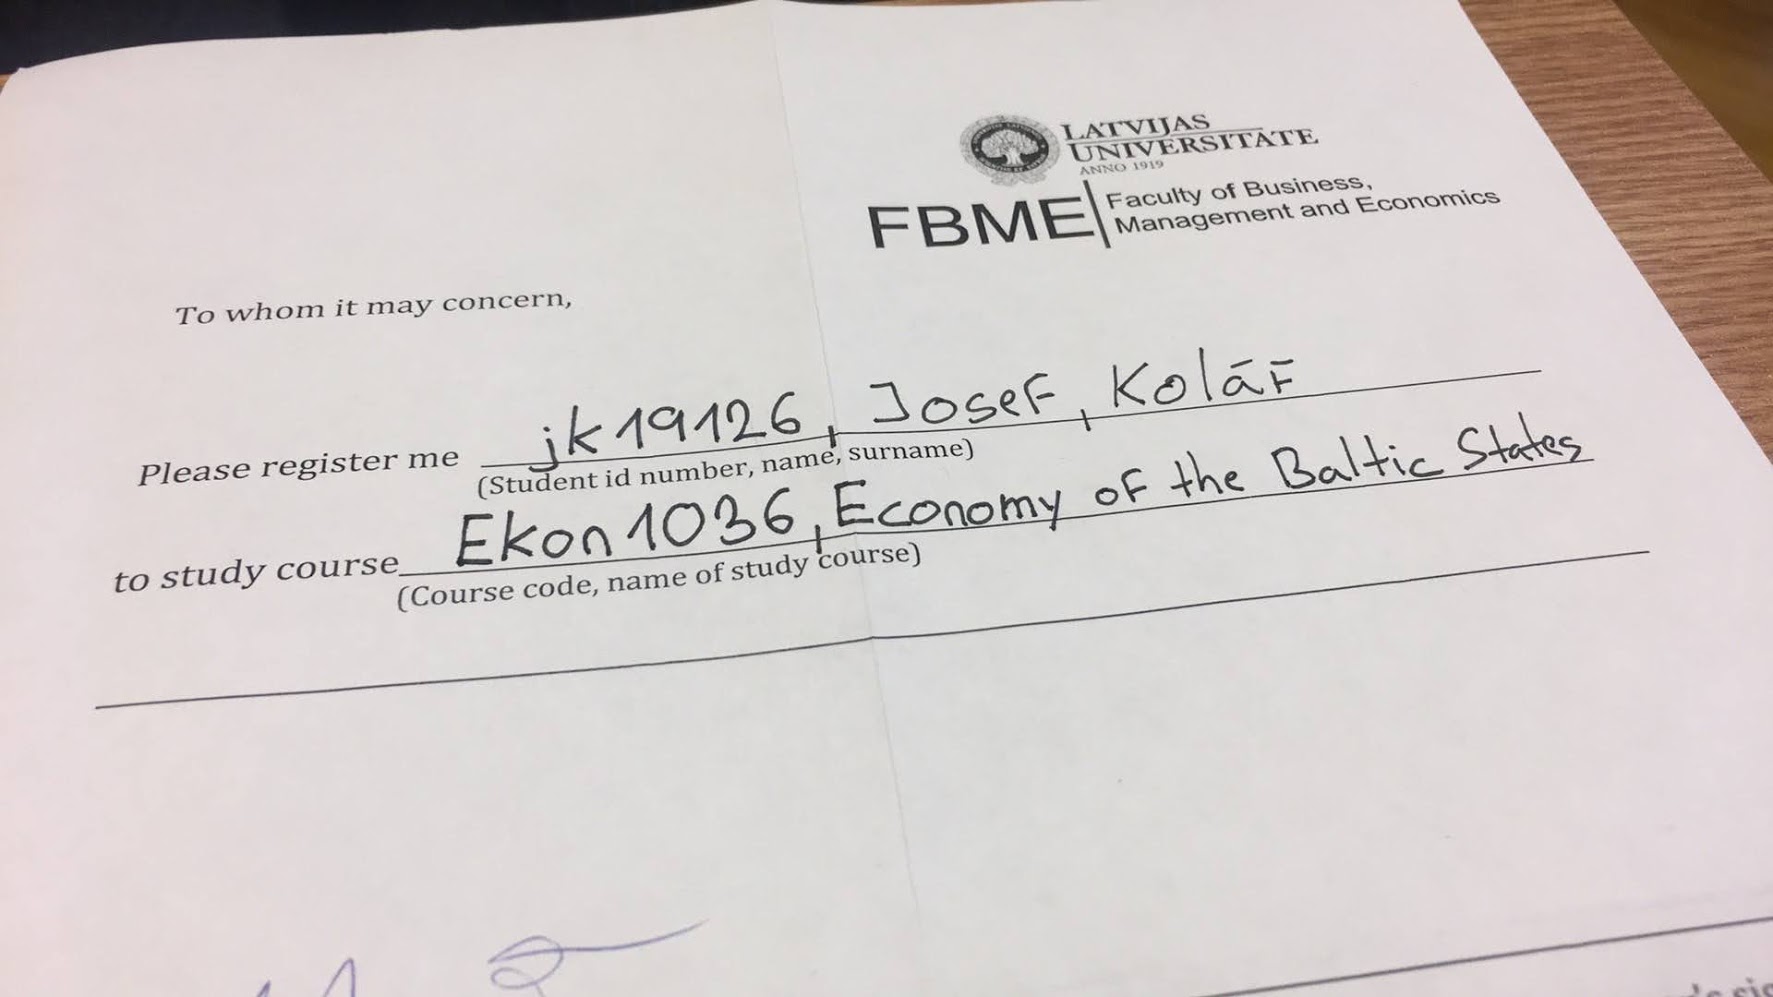 LATVIJAS
UNIVERSITĀTE
ANNO 1919
FBME
Faculty of Business,
Management and Economics
To whom it may concern,
Please register me jk19126, Josef, Kolář
(Student id number, name, surname)
to study course Ekon1036, Economy of the Baltic States
(Course code, name of study course)